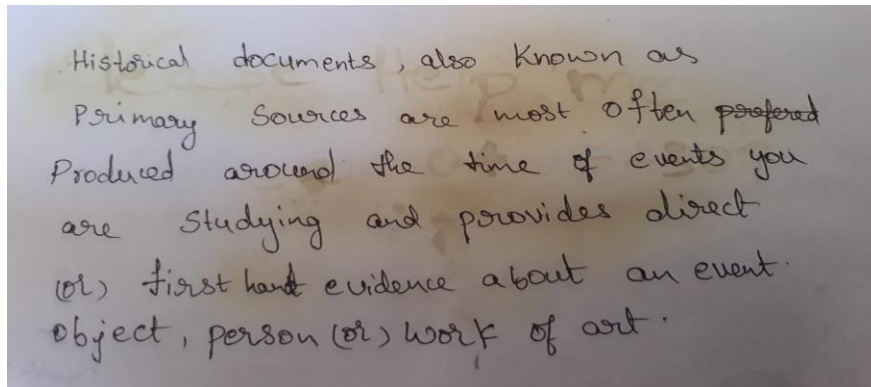 Historical documents, also known as
Primary Sources are most often prefered
Produced around the time of events you
are Studying and provides direct
(or) first hand evidence about an event.
object, person (or) work of art.